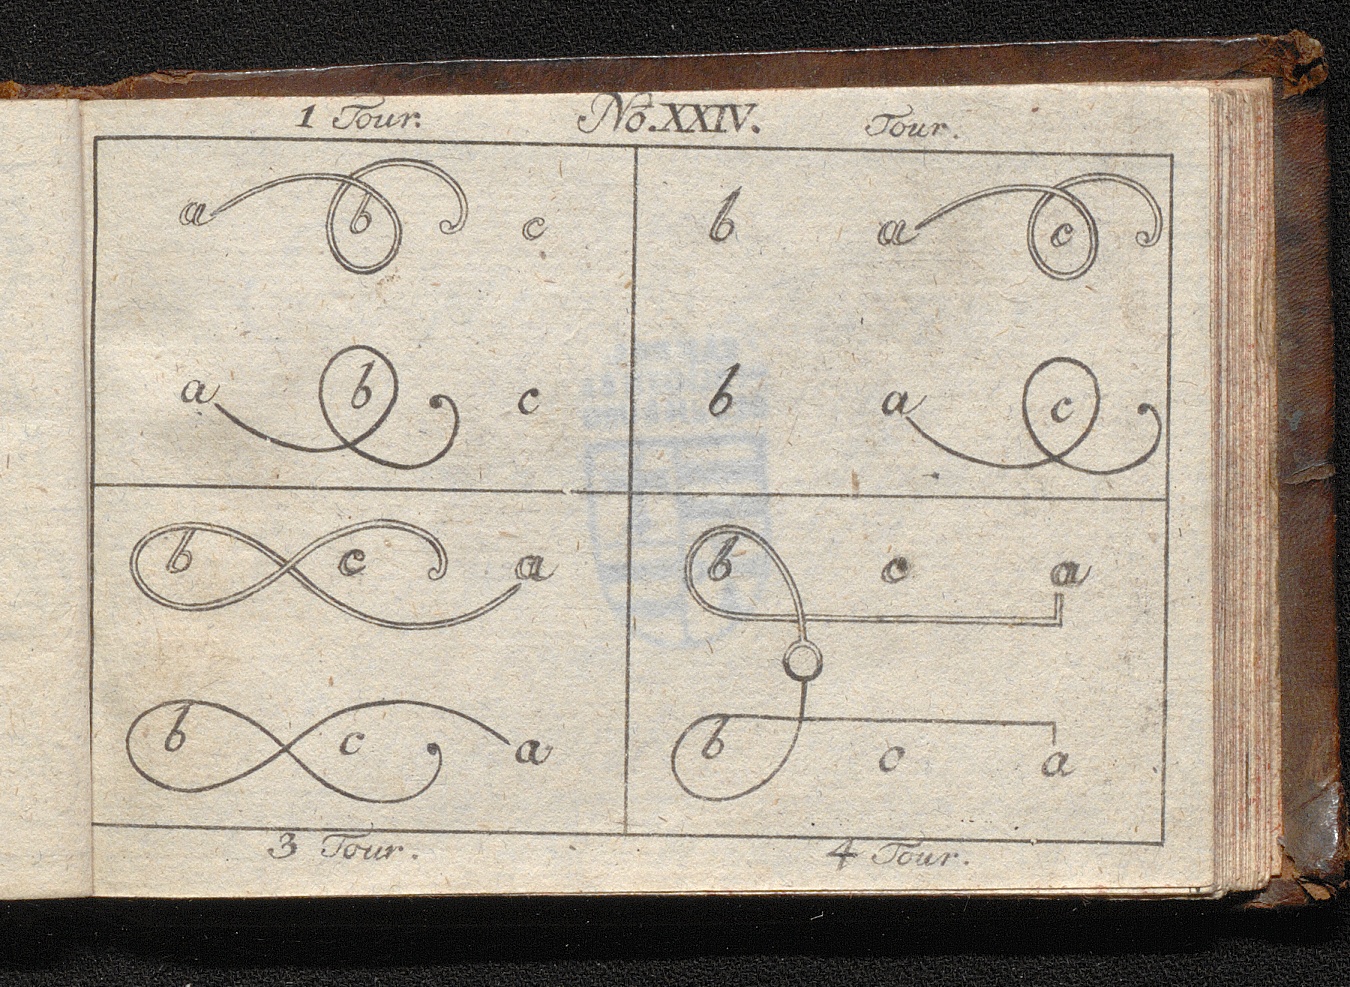 1 Tour. No. XXIV. Tour.
a b c b a c
a b c b a c
b c a b c a
b c a b c a
3 Tour. 4 Tour.